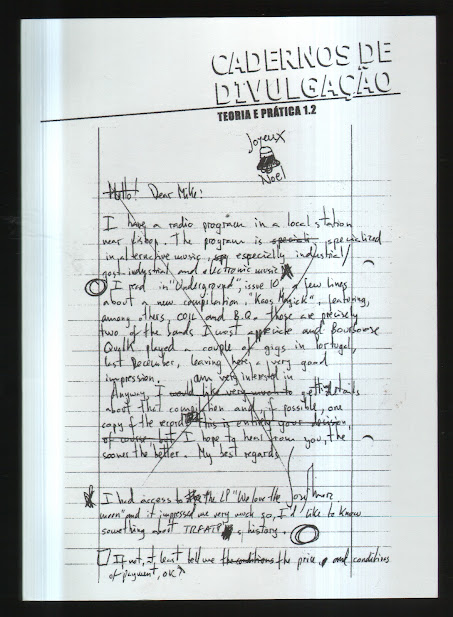 CADERNOS DE
DIVULGAÇÃO
TEORIA E PRÁTICA 1.2
Joyeux
Noel
Hello! Dear Mike!
I have a radio program in a local station
near Lisboa. The program is speciali specialized
in alternative music, esp especially industrial/
post-industrial and electronic music.
I read in "Underground", issue 10, a few lines
about a new compilation "Kaos Magick", featuring,
among others, COIL and B.Q. Those are precisely
two of the bands I most appreciate and Bourbonese
Qualk played a couple of gigs in Portugal,
last December, leaving here a very good
impression.
am very interested in
Anyway, I would like very much to get details
about that compilation and if possible, one
copy of the record. This is entirely your decision,
of course but I hope to hear from you, the
sooner the better. My best regards
I had access to the LP "We love the
and it impressed me very much so, I'd like to know
something about history.
If not, at least tell me the conditions the price and conditions
of payment, OK?